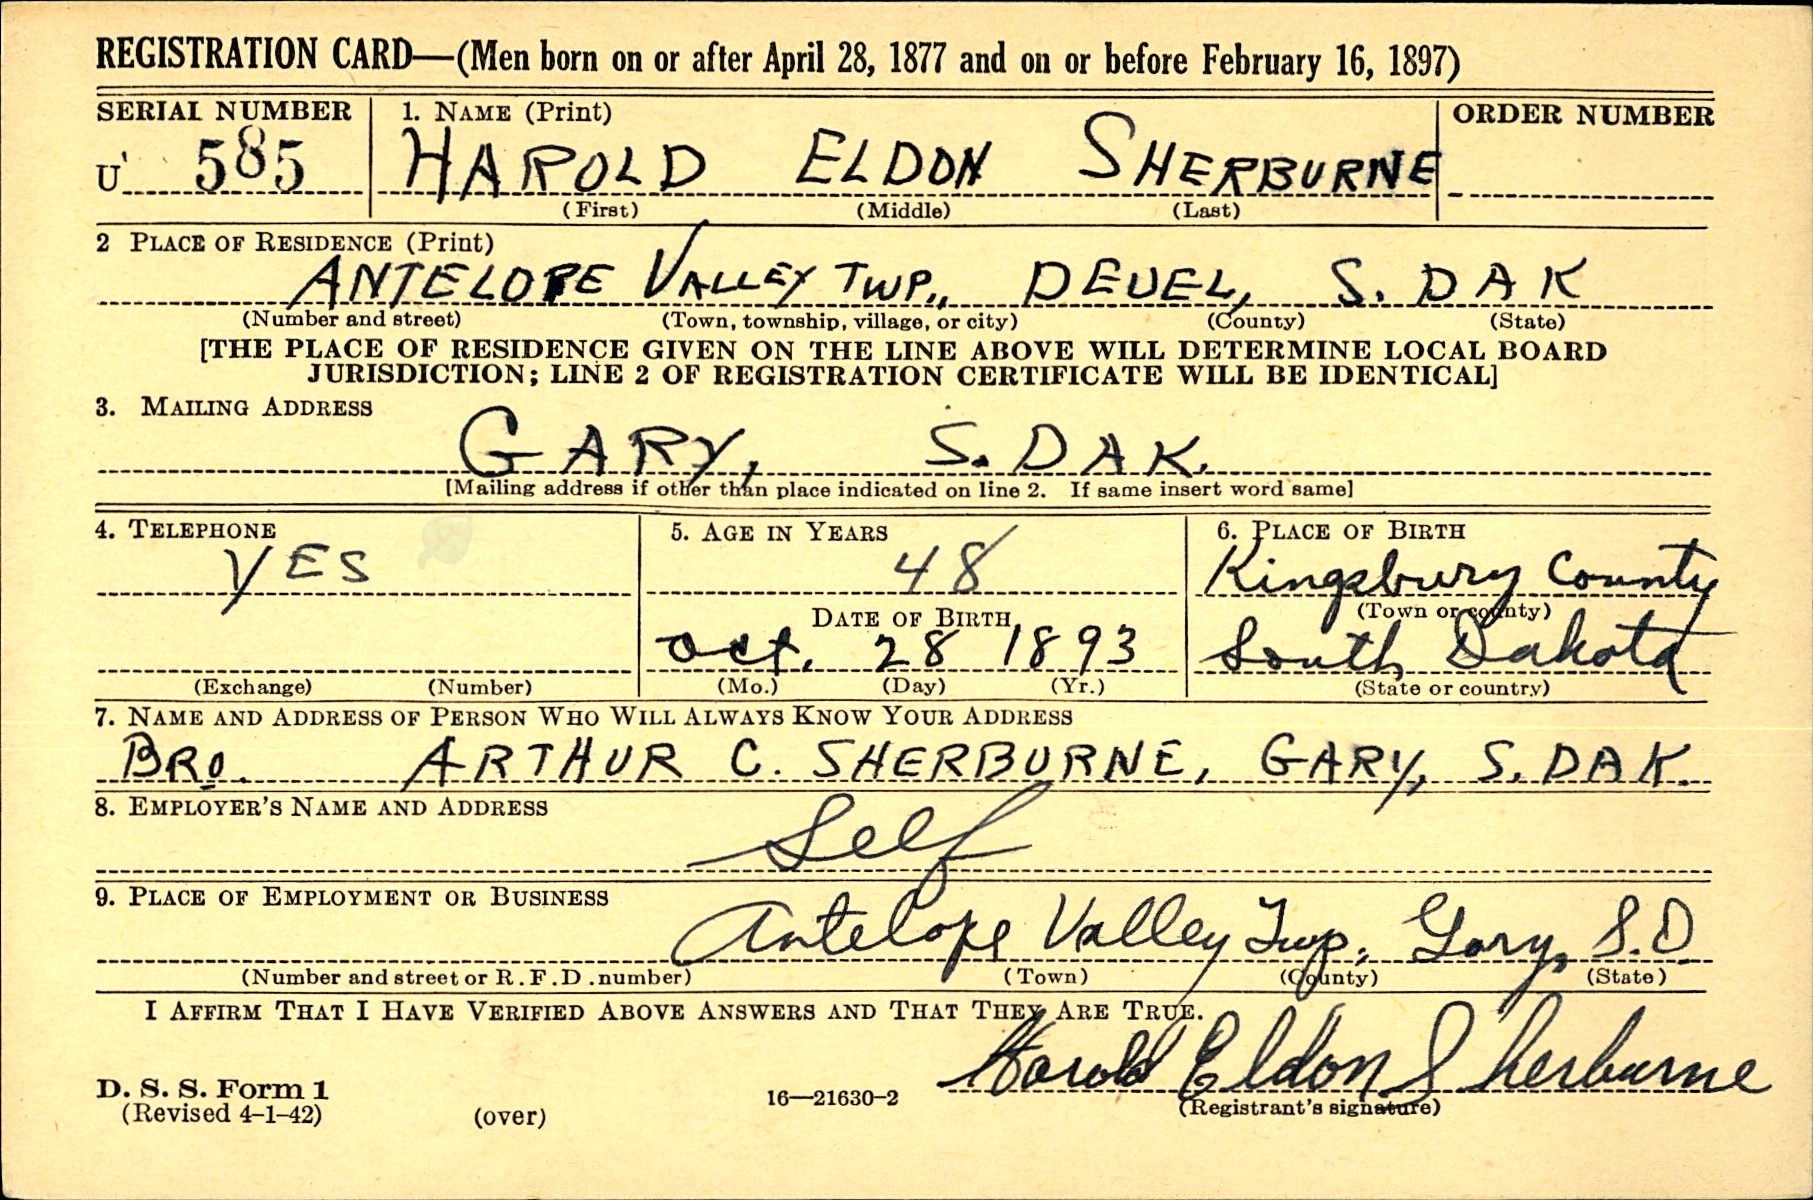 REGISTRATION CARD—(Men born on or after April 28, 1877 and on or before February 16, 1897)
SERIAL NUMBER
1. NAME (Print)
ORDER NUMBER
U 585
HAROLD ELDON SHERBURNE
(First) (Middle) (Last)
2 PLACE OF RESIDENCE (Print)
ANTELOPE VALLEY TWP., DEUEL, S. DAK
(Number and street) (Town, township, village, or city) (County) (State)
[THE PLACE OF RESIDENCE GIVEN ON THE LINE ABOVE WILL DETERMINE LOCAL BOARD
JURISDICTION; LINE 2 OF REGISTRATION CERTIFICATE WILL BE IDENTICAL]
3. MAILING ADDRESS
GARY, S. DAK.
[Mailing address if other than place indicated on line 2. If same insert word same]
4. TELEPHONE
YES
(Exchange) (Number)
5. AGE IN YEARS
48
DATE OF BIRTH
Oct. 28 1893
(Mo.) (Day) (Yr.)
6. PLACE OF BIRTH
Kingsbury County
(Town or county)
South Dakota
(State or country)
7. NAME AND ADDRESS OF PERSON WHO WILL ALWAYS KNOW YOUR ADDRESS
BRO. ARTHUR C. SHERBURNE, GARY, S. DAK.
8. EMPLOYER'S NAME AND ADDRESS
Self
9. PLACE OF EMPLOYMENT OR BUSINESS
Antelope Valley Twp, Gary, S.D.
(Number and street or R.F.D. number) (Town) (County) (State)
I AFFIRM THAT I HAVE VERIFIED ABOVE ANSWERS AND THAT THEY ARE TRUE.
Harold Eldon Sherburne
(Registrant's signature)
D. S. S. Form 1
(Revised 4-1-42) (over) 16—21630-2